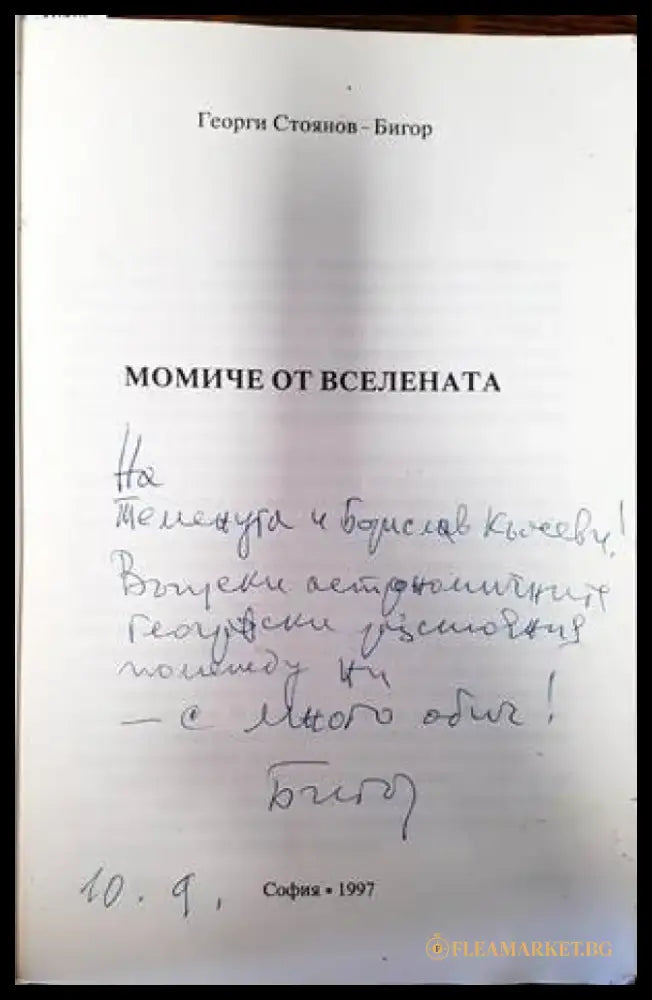 Георги Стоянов – Бигор
МОМИЧЕ ОТ ВСЕЛЕНАТА
На
Теменуга и Борислав Кьосеви!
Въпреки астрономичните
географски разстояния
помежду ни
– с много обич!
Бигор
10. 9.
София • 1997
FLEAMARKET.BG